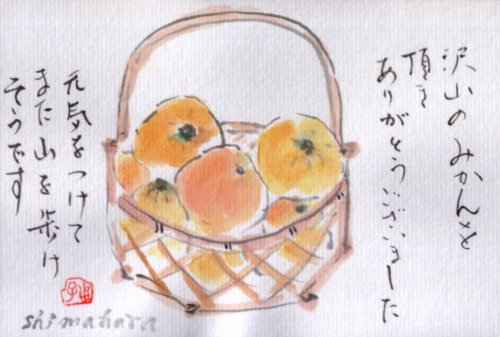 沢山のみかんを
頂き
ありがとうございました
元気をつけて
また山を歩け
そうです
shimahara